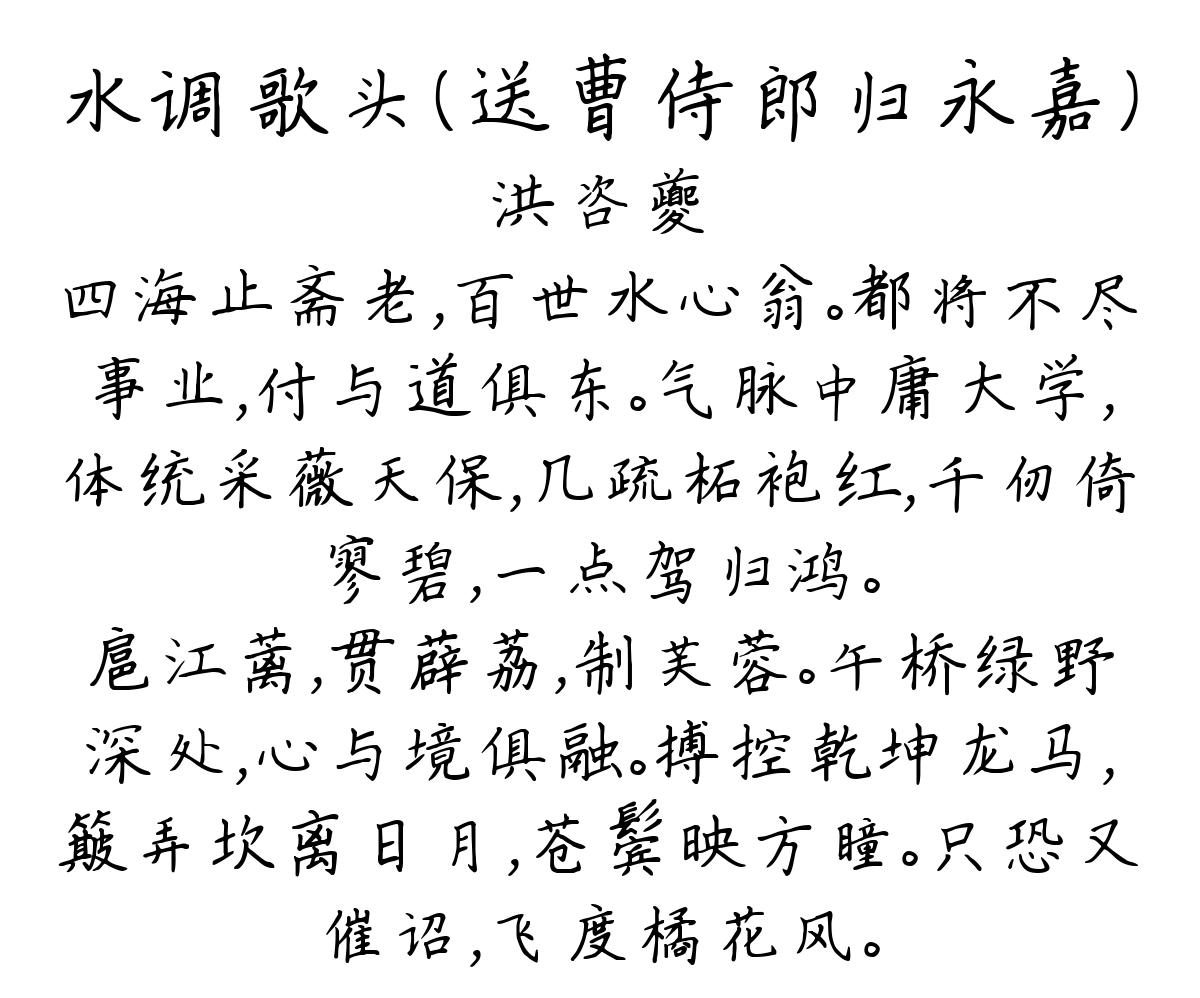 水调歌头(送曹侍郎归永嘉)
洪咨夔
四海止斋老,百世水心翁。都将不尽
事业,付与道俱东。气脉中庸大学,
体统采薇天保,几疏柘袍红,千仞倚
寥碧,一点驾归鸿。
扈江蓠,贯薜荔,制芙蓉。午桥绿野
深处,心与境俱融。搏控乾坤龙马,
簸弄坎离日月,苍鬓映方瞳。只恐又
催诏,飞度橘花风。